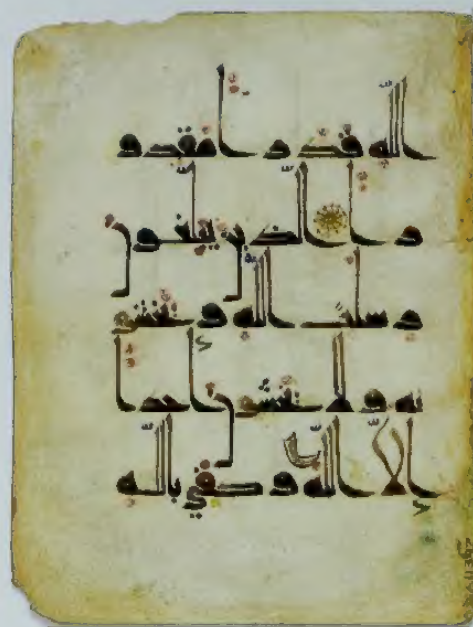 الله قدرا مقدو
را الذين يبلغون
رسلت الله ويخشو
نه ولا يخشون احدا
إلا الله وكفى بالله